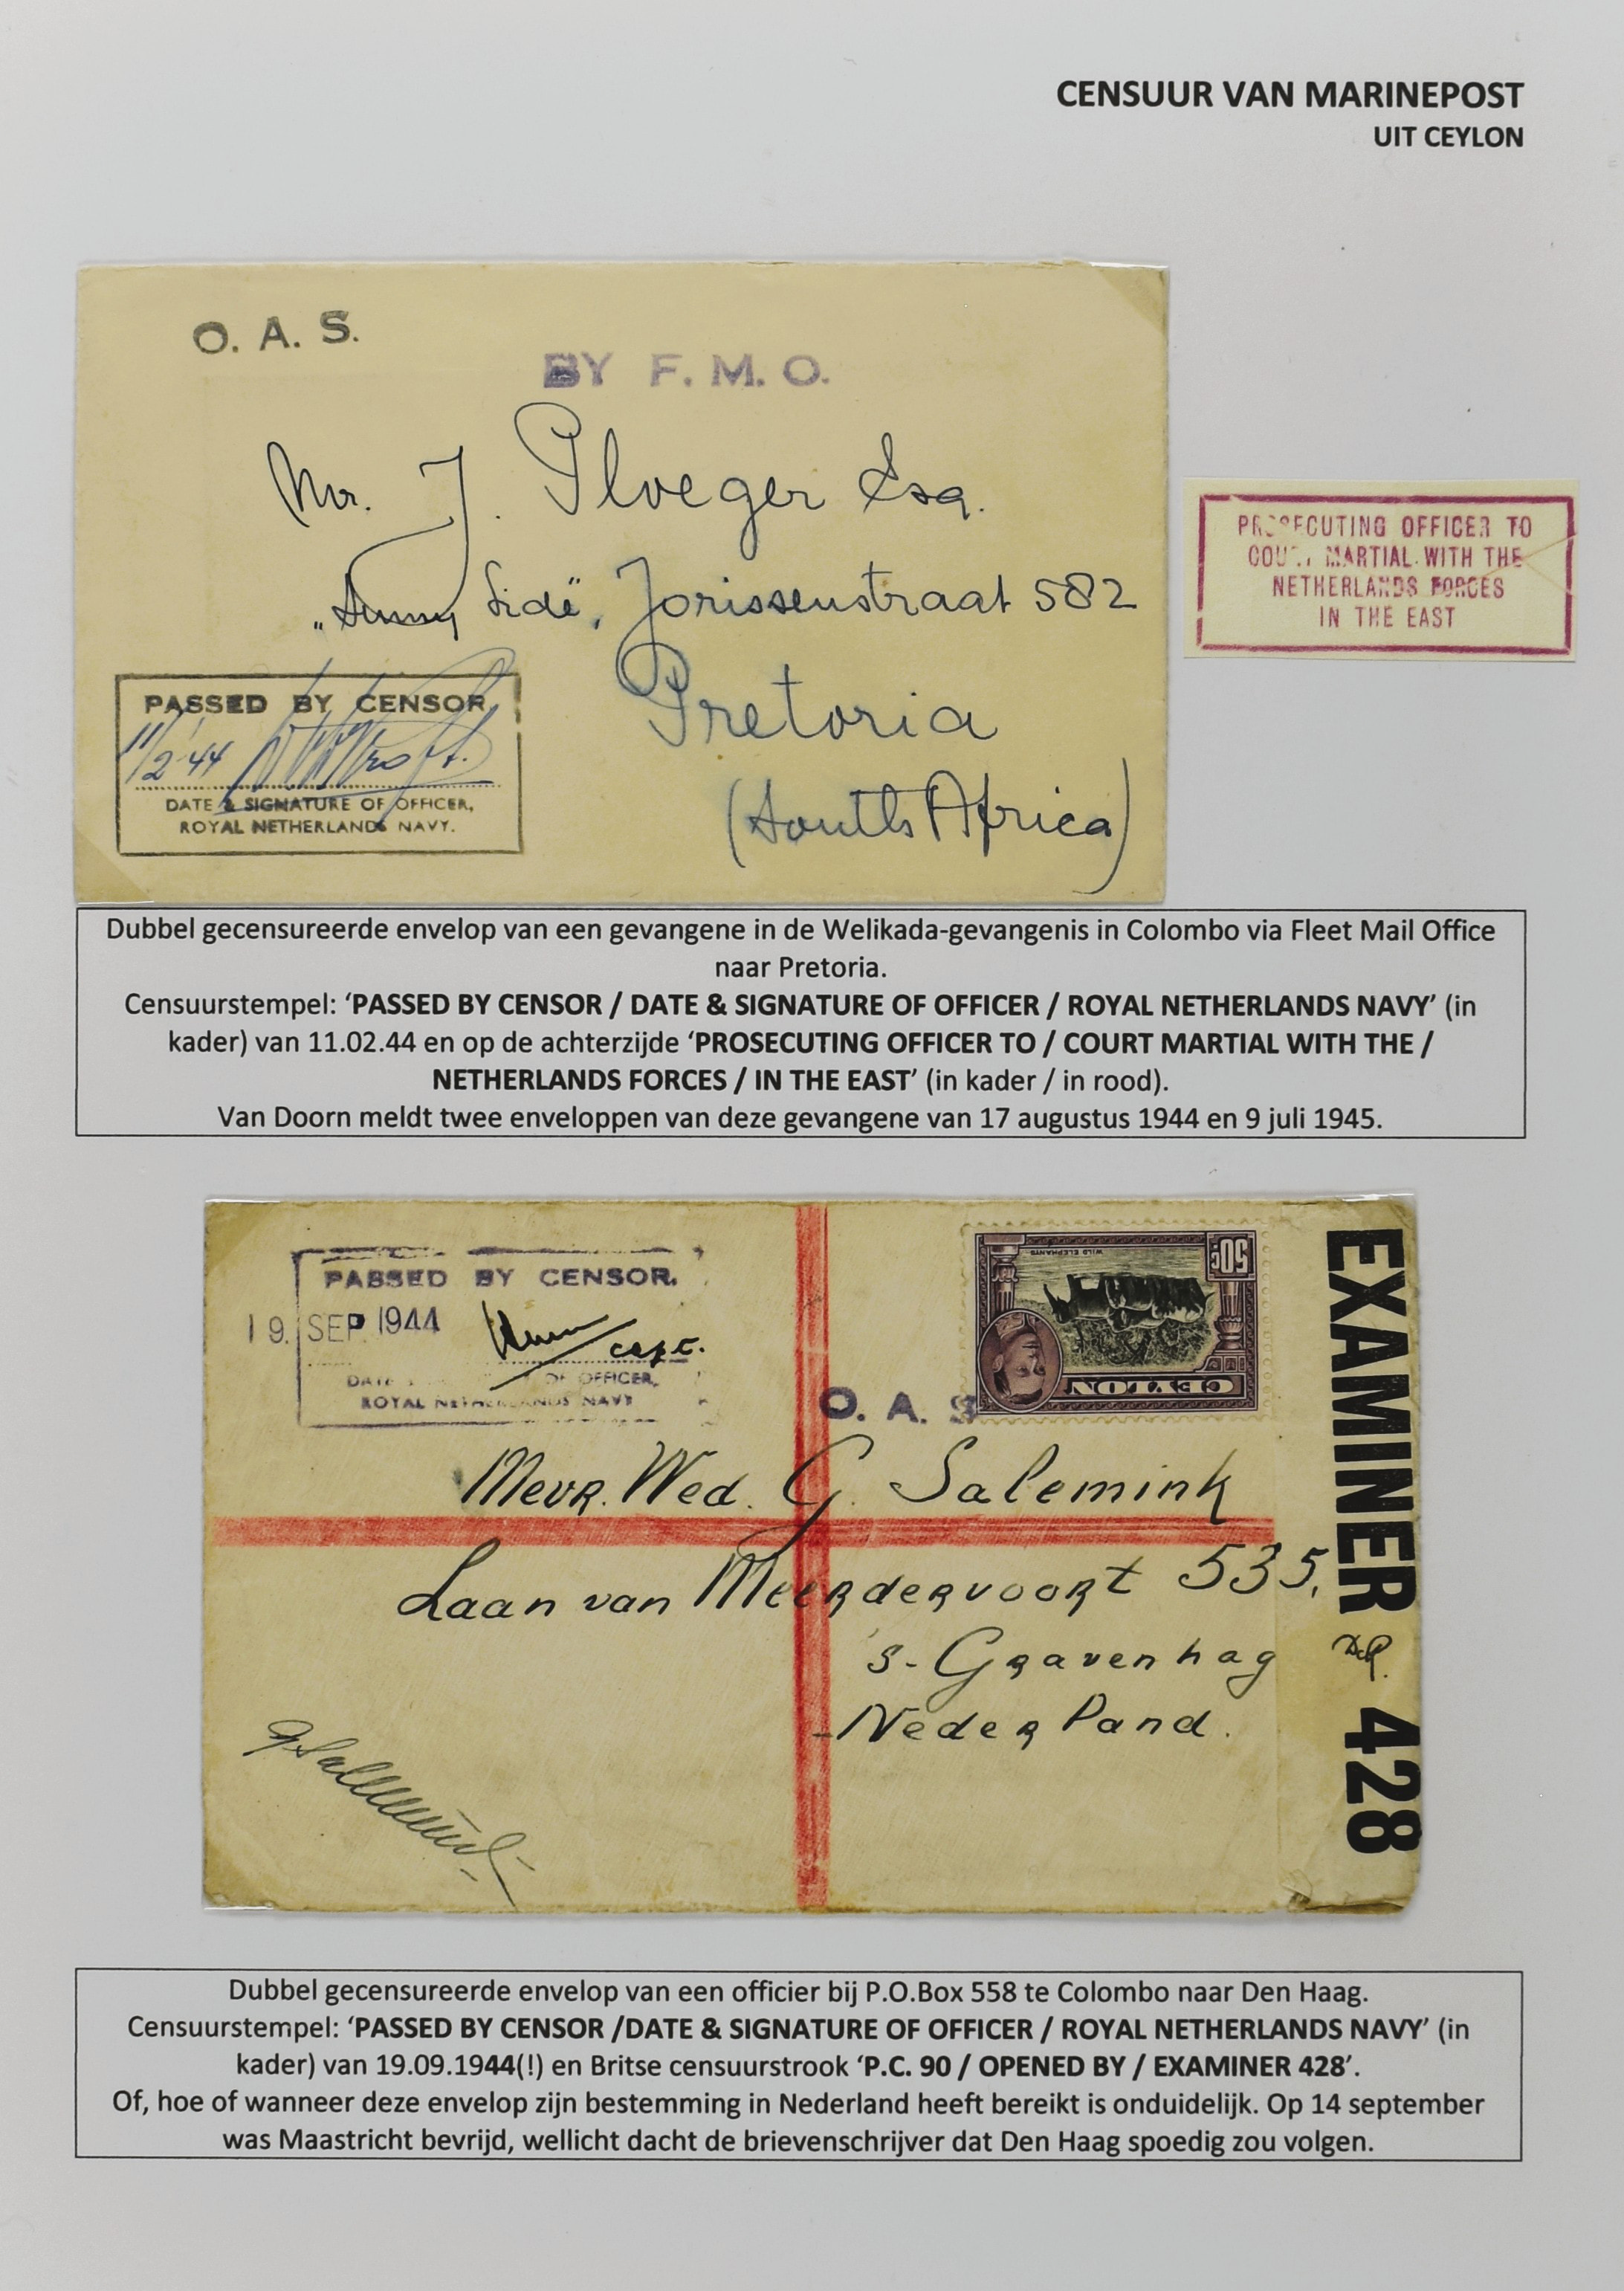 CENSUUR VAN MARINEPOST
UIT CEYLON
O. A. S.
BY F. M. O.
Mr. J. Ploeger Esq.
„Sunny Side", Jorissenstraat 582
Pretoria
(South Africa)
PASSED BY CENSOR
11/2'44
DATE & SIGNATURE OF OFFICER,
ROYAL NETHERLANDS NAVY.
PROSECUTING OFFICER TO
COURT MARTIAL WITH THE
NETHERLANDS FORCES
IN THE EAST
Dubbel gecensureerde envelop van een gevangene in de Welikada-gevangenis in Colombo via Fleet Mail Office
naar Pretoria.
Censuurstempel: ‘PASSED BY CENSOR / DATE & SIGNATURE OF OFFICER / ROYAL NETHERLANDS NAVY’ (in
kader) van 11.02.44 en op de achterzijde ‘PROSECUTING OFFICER TO / COURT MARTIAL WITH THE /
NETHERLANDS FORCES / IN THE EAST’ (in kader / in rood).
Van Doorn meldt twee enveloppen van deze gevangene van 17 augustus 1944 en 9 juli 1945.
PASSED BY CENSOR.
19. SEP 1944
capt.
DATE OF OFFICER,
ROYAL NETHERLANDS NAVY
50c
WILD ELEPHANTS
CEYLON
O. A. S
Mevr. Wed. G. Salemink
Laan van Meerdervoort 535,
's-Gravenhag
Nederland.
G Salemink
EXAMINER 428
Dubbel gecensureerde envelop van een officier bij P.O.Box 558 te Colombo naar Den Haag.
Censuurstempel: ‘PASSED BY CENSOR /DATE & SIGNATURE OF OFFICER / ROYAL NETHERLANDS NAVY’ (in
kader) van 19.09.1944(!) en Britse censuurstrook ‘P.C. 90 / OPENED BY / EXAMINER 428’.
Of, hoe of wanneer deze envelop zijn bestemming in Nederland heeft bereikt is onduidelijk. Op 14 september
was Maastricht bevrijd, wellicht dacht de brievenschrijver dat Den Haag spoedig zou volgen.